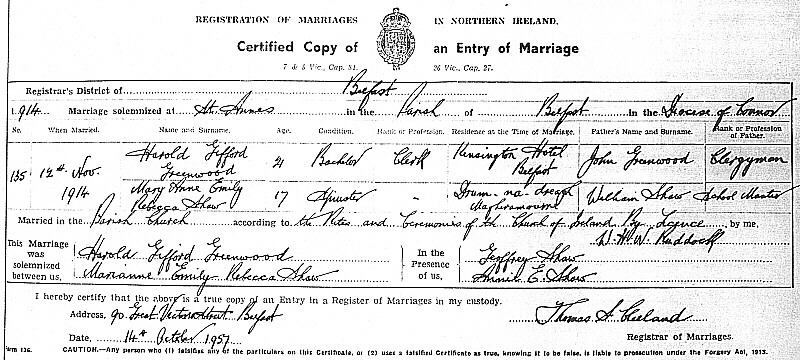 REGISTRATION OF MARRIAGES IN NORTHERN IRELAND.
Certified Copy of an Entry of Marriage
7 & 8 Vic., Cap. 81. 26 Vic., Cap. 27.
Registrar's District of Belfast
1914 Marriage solemnized at St. Annes in the Parish of Belfast in the Diocese of Connor
No. When Married. Name and Surname. Age. Condition. Rank or Profession. Residence at the Time of Marriage. Father's Name and Surname. Rank or Profession of Father.
135 12th Nov. 1914 Harold Gifford Greenwood 21 Bachelor Clerk Kensington Hotel Belfast John Greenwood Clergyman
Mary Anne Emily Rebecca Shaw 17 Spinster " Drum-na-dreagh William Shaw School Master
Married in the Parish Church according to the Rites and Ceremonies of the Church of Ireland By Licence by me,
W. H. W. Ruddock
This Marriage was solemnized between us, Harold Gifford Greenwood In the Presence of us, Geoffrey Shaw
Marianne Emily Rebecca Shaw Annie E. Shaw
I hereby certify that the above is a true copy of an Entry in a Register of Marriages in my custody.
Address, 90 Great Victoria Street Belfast Thomas S. Cleland
Date, 14th October 1957 Registrar of Marriages.
Form 136. CAUTION.—Any person who (1) falsifies any of the particulars on this Certificate, or (2) uses a falsified Certificate as true, knowing it to be false, is liable to prosecution under the Forgery Act, 1913.